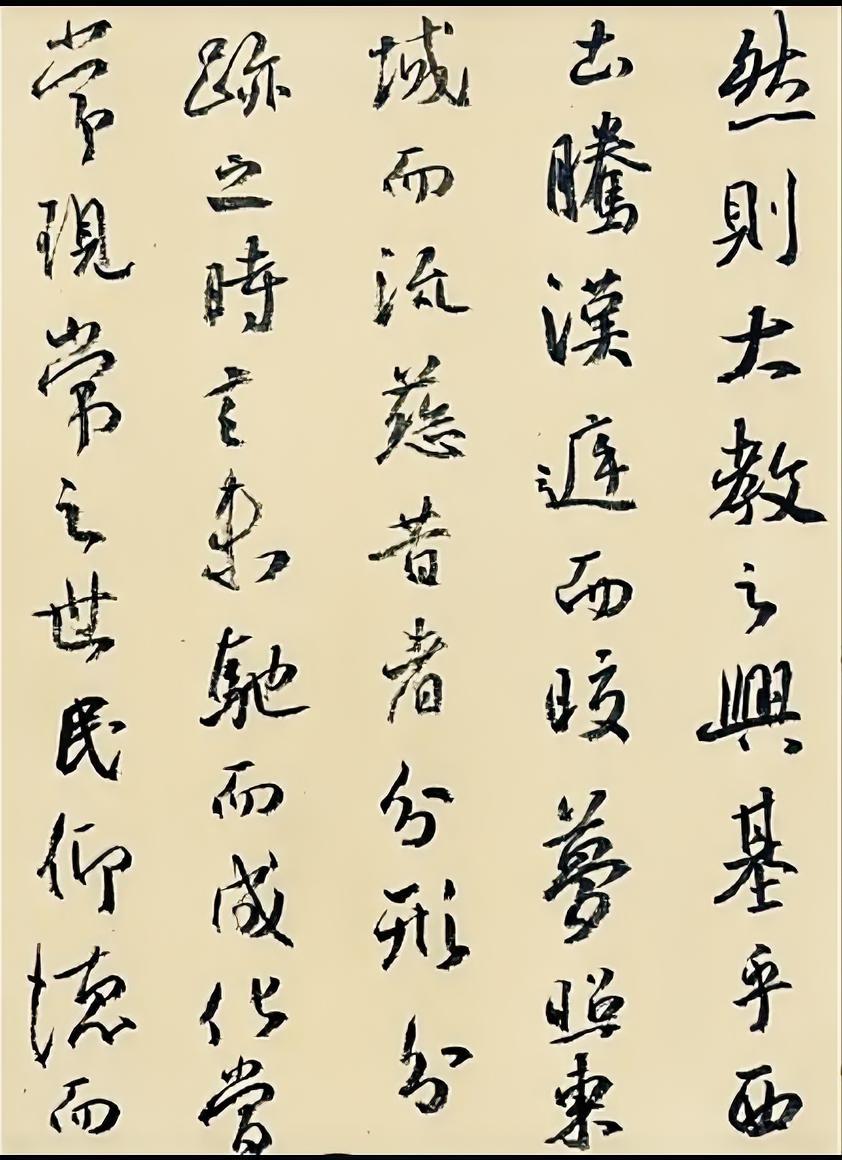 然則大教之興基乎西
土騰漢庭而皎夢照東
域而流慈昔者分形分
跡之時言未馳而成化當
常現常之世民仰德而